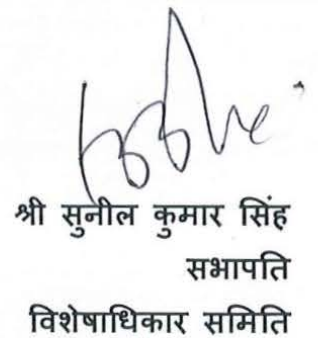 श्री सुनील कुमार सिंह
सभापति
विशेषाधिकार समिति